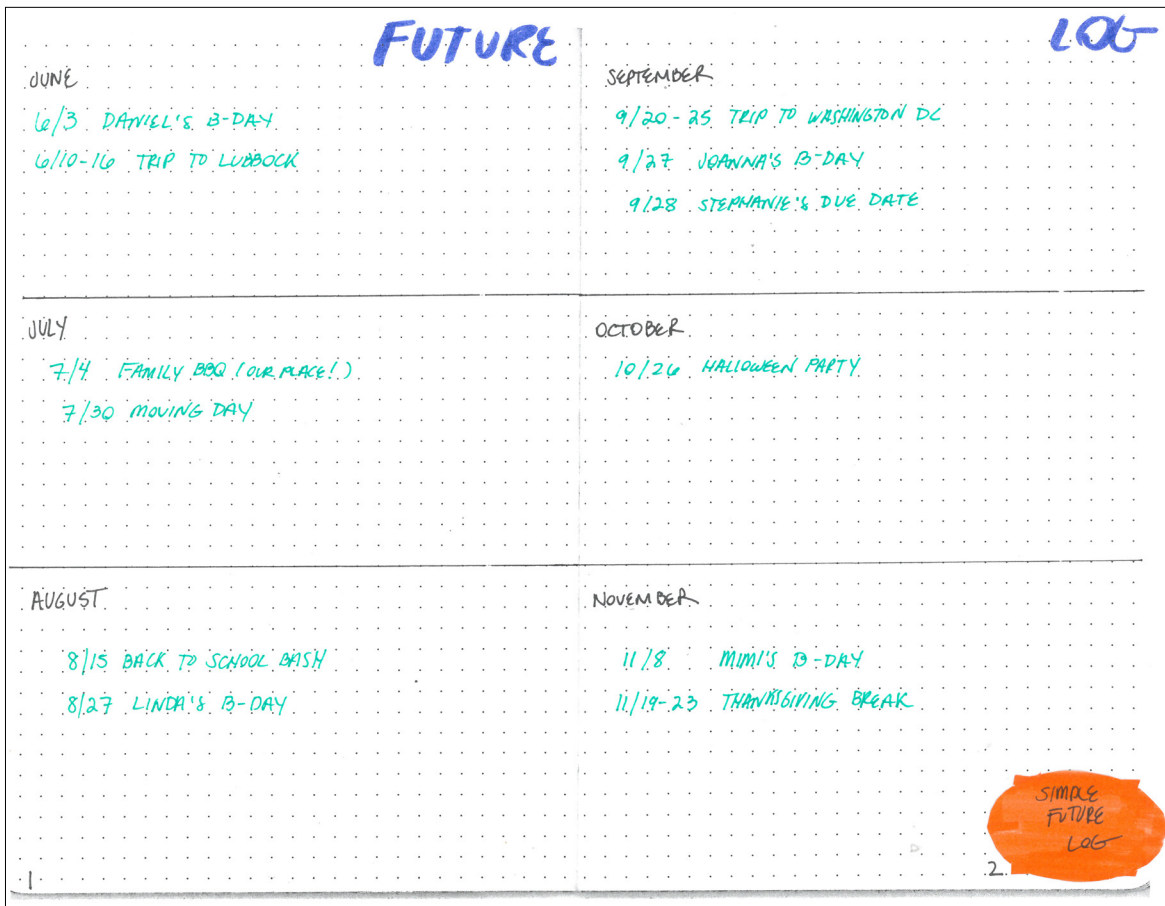 FUTURE LOG
JUNE
6/3 DANIEL'S B-DAY
6/10-16 TRIP TO LUBBOCK
JULY
7/4 FAMILY BBQ (OUR PLACE!)
7/30 MOVING DAY
AUGUST
8/15 BACK TO SCHOOL BASH
8/27 LINDA'S B-DAY
1
SEPTEMBER
9/20-25 TRIP TO WASHINGTON DC
9/27 JOANNA'S B-DAY
9/28 STEPHANIE'S DUE DATE
OCTOBER
10/26 HALLOWEEN PARTY
NOVEMBER
11/8 MIMI'S B-DAY
11/19-23 THANKSGIVING BREAK
SIMPLE
FUTURE
LOG
2